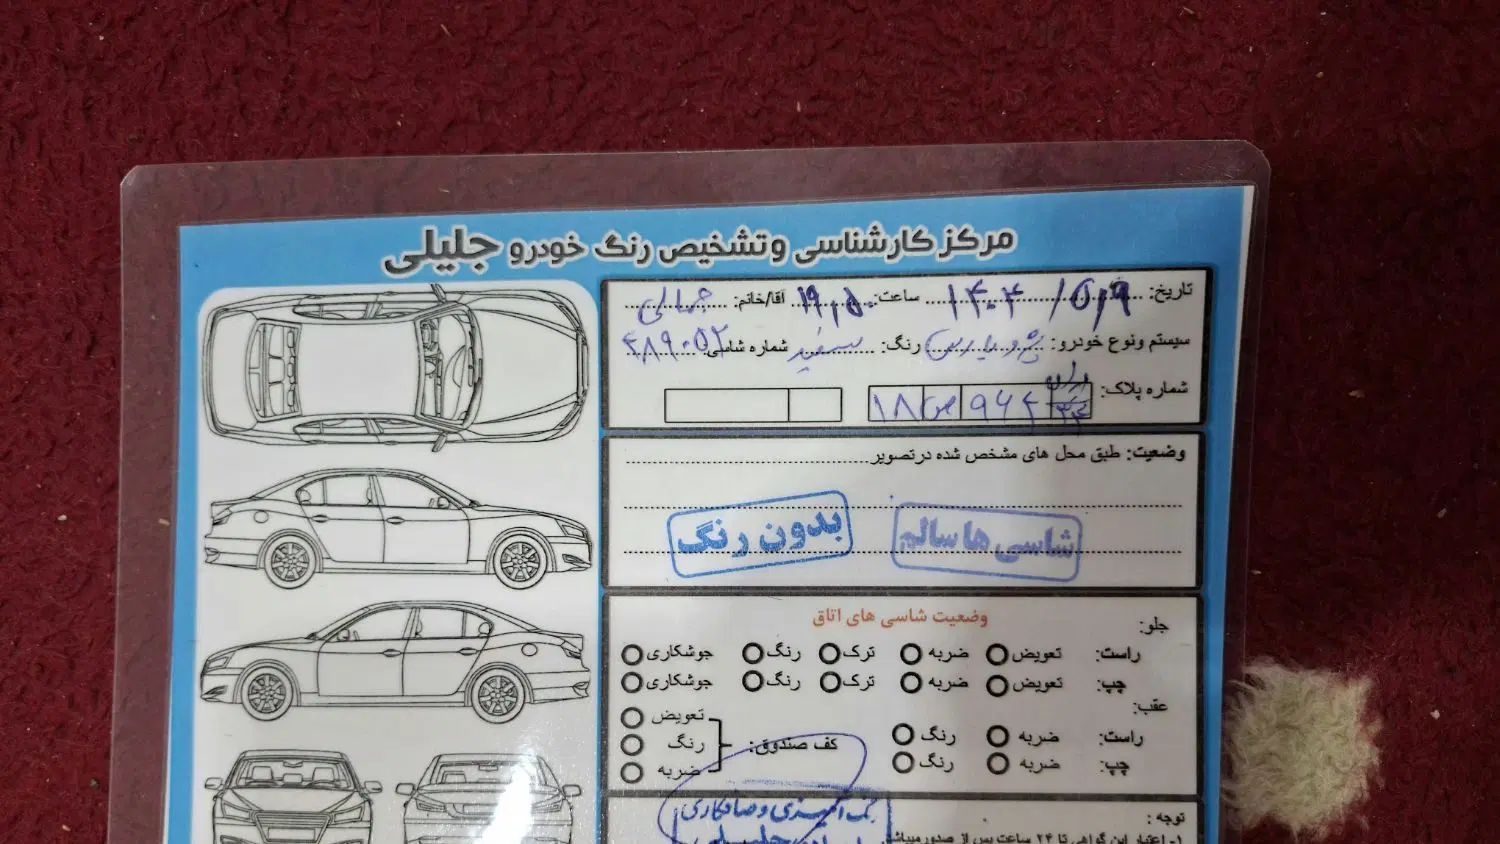 مرکز کارشناسی و تشخیص رنگ خودرو جلیلی
تاریخ: ۱۴۰۴/۵/۹ ساعت: ۱۹,۵۰ آقا/خانم: جمالی
سیستم ونوع خودرو: پژو پارس رنگ: سفید شماره شاسی: ۳۸۹۰۵۲
شماره پلاک: ایران ۹۶۴ ص ۱۸
وضعیت: طبق محل های مشخص شده در تصویر
شاسی ها سالم
بدون رنگ
وضعیت شاسی های اتاق
جلو:
راست: تعویض ضربه ترک رنگ جوشکاری
چپ: تعویض ضربه ترک رنگ جوشکاری
عقب:
راست: ضربه رنگ
چپ: ضربه رنگ
کف صندوق: تعویض
رنگ
ضربه
توجه :
۱- اعتبار این گواهی تا ۲۴ ساعت پس از صدور میباشد
صافکاری
جلیلی